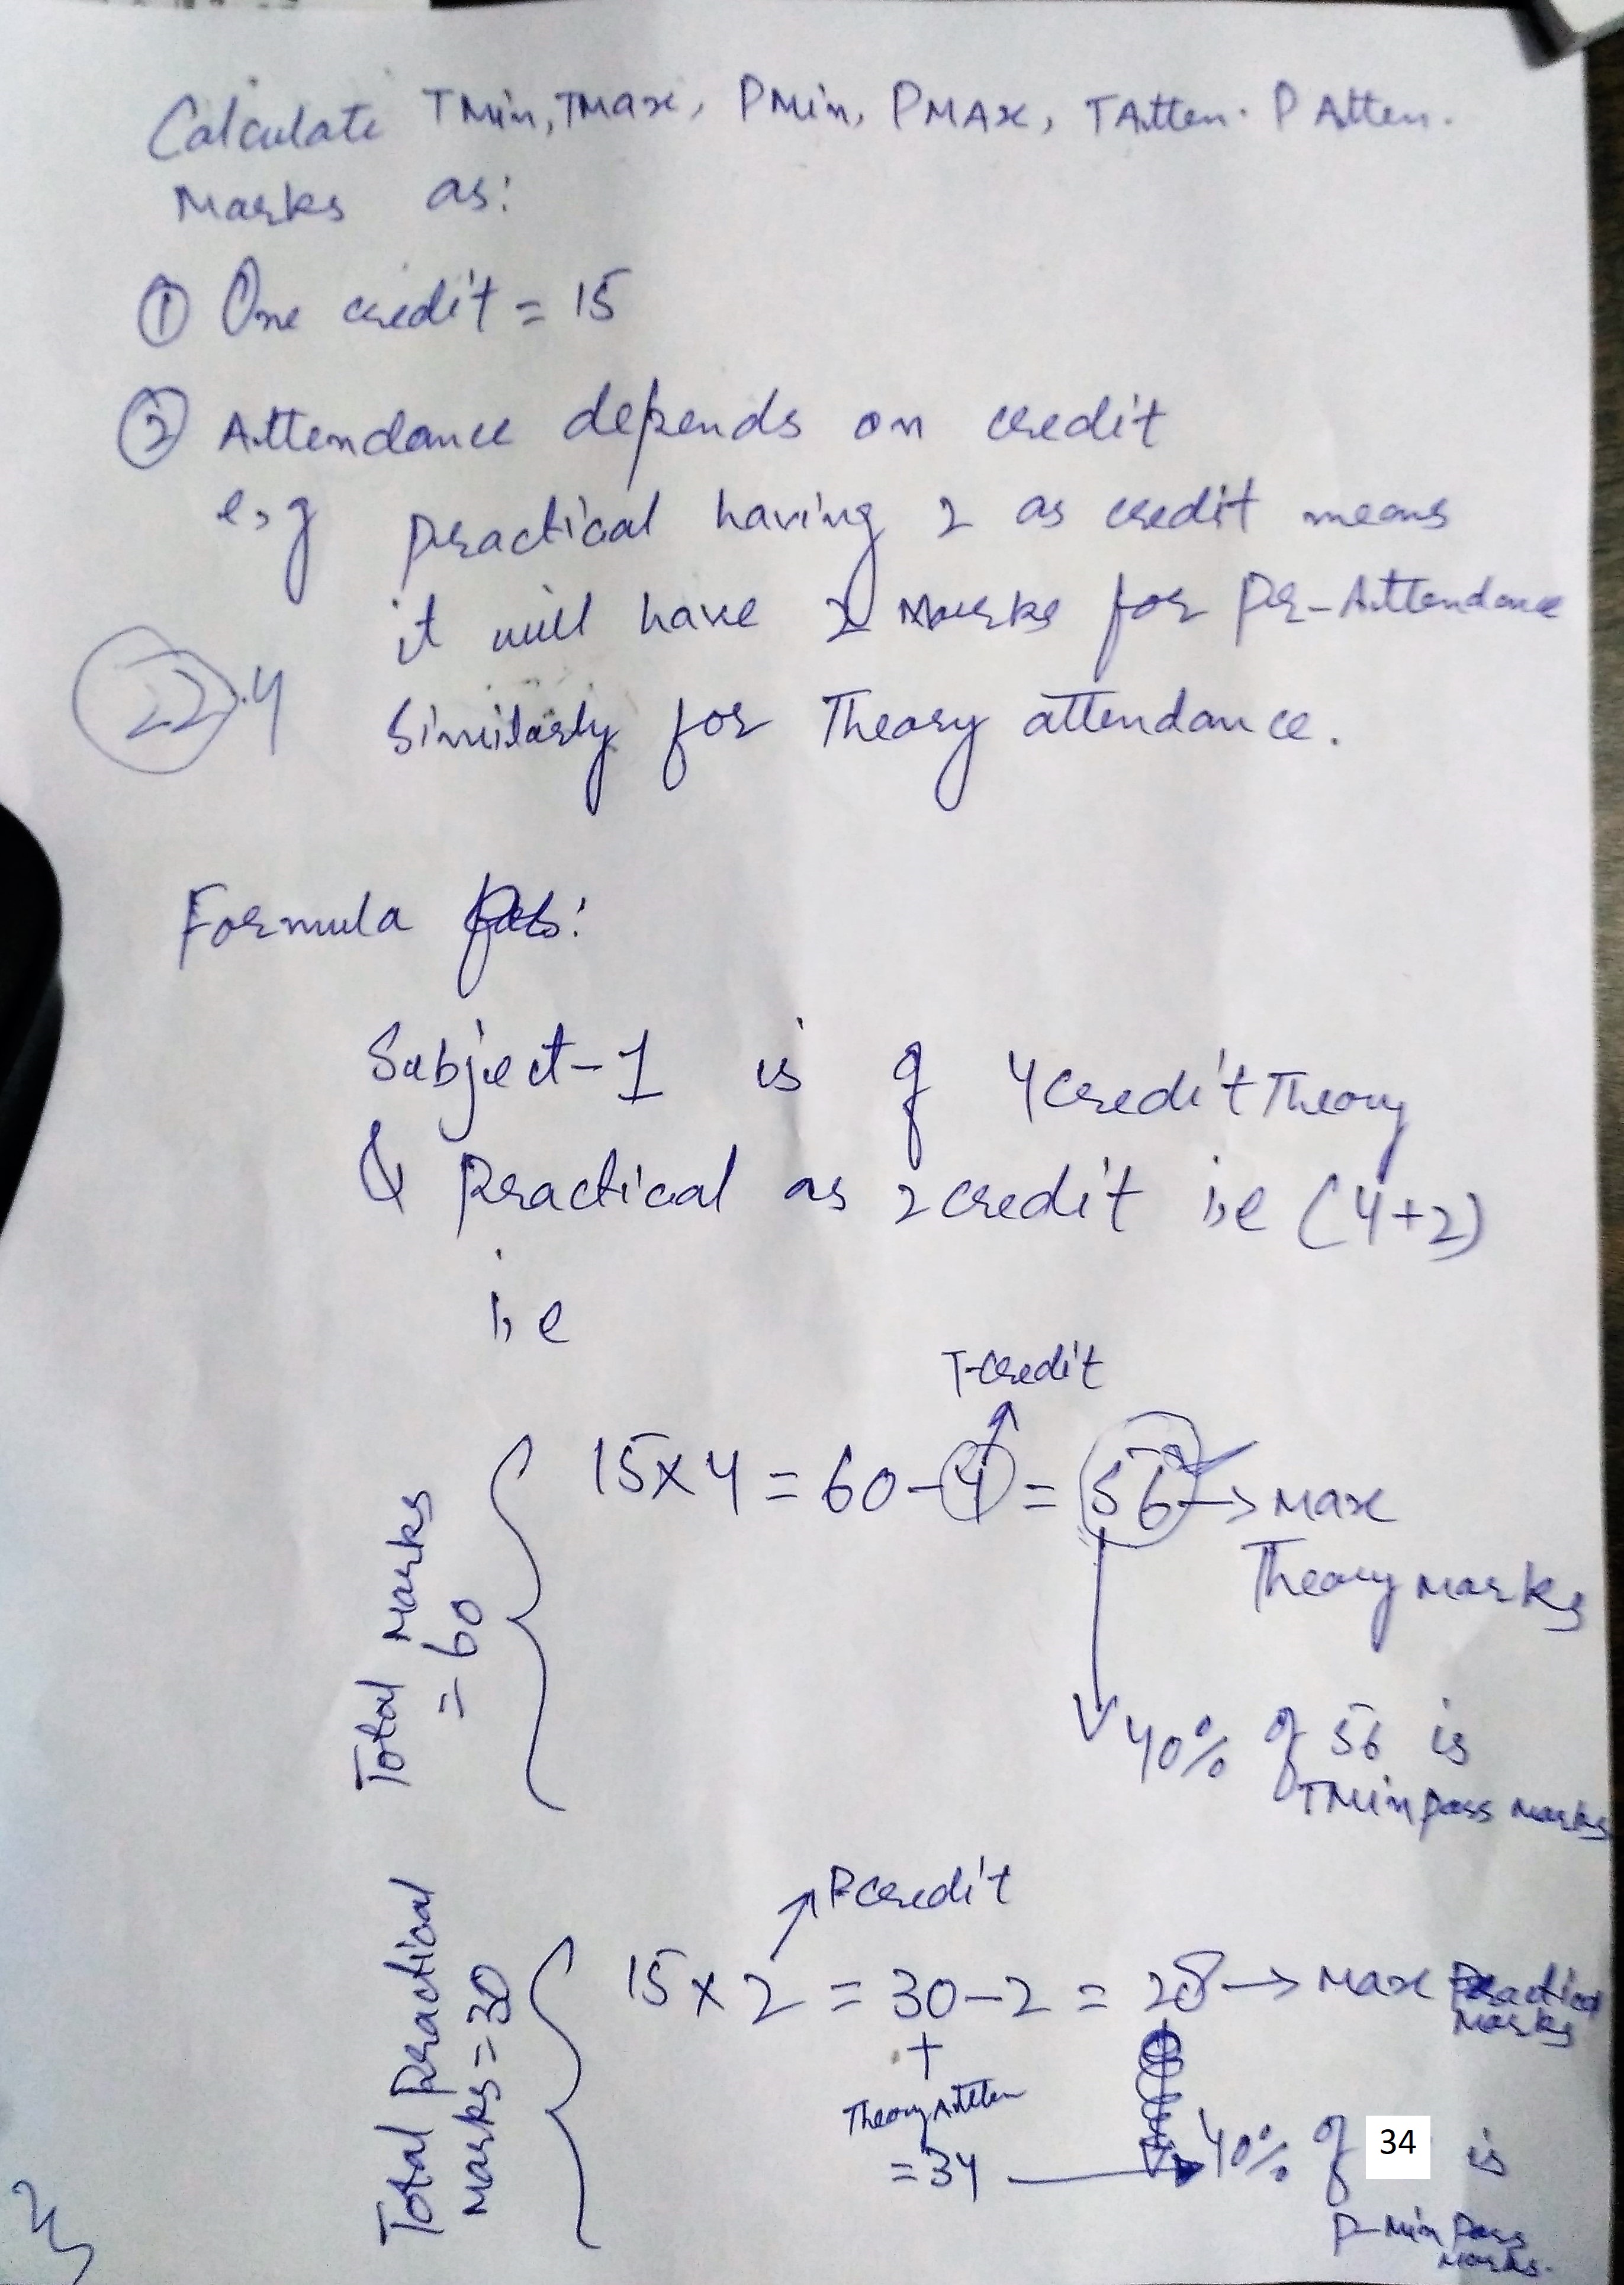 Calculate TMin, TMax, PMin, PMAx, TAtten. P Atten.
Marks as:
① One credit = 15
② Attendance depends on credit
e,g practical having 2 as credit means
it will have 2 Marks for Pr-Attendance
22.4
Similarly for Theory attendance.
Formula
Subject-1 is of 4 credit Theory
& practical as 2 credit i,e (4+2)
i,e
T-credit
15x4 = 60-4 = 56 → Max
Theory marks
Total Marks
= 60
40% of 56 is
TMin pass marks
P-credit
15 x 2 = 30-2 = 28 → Max Practical
Marks
Total Practical
Marks = 30
+
Theory Atten
= 34 → 40% of 34 is
P-Min Pass
Marks.